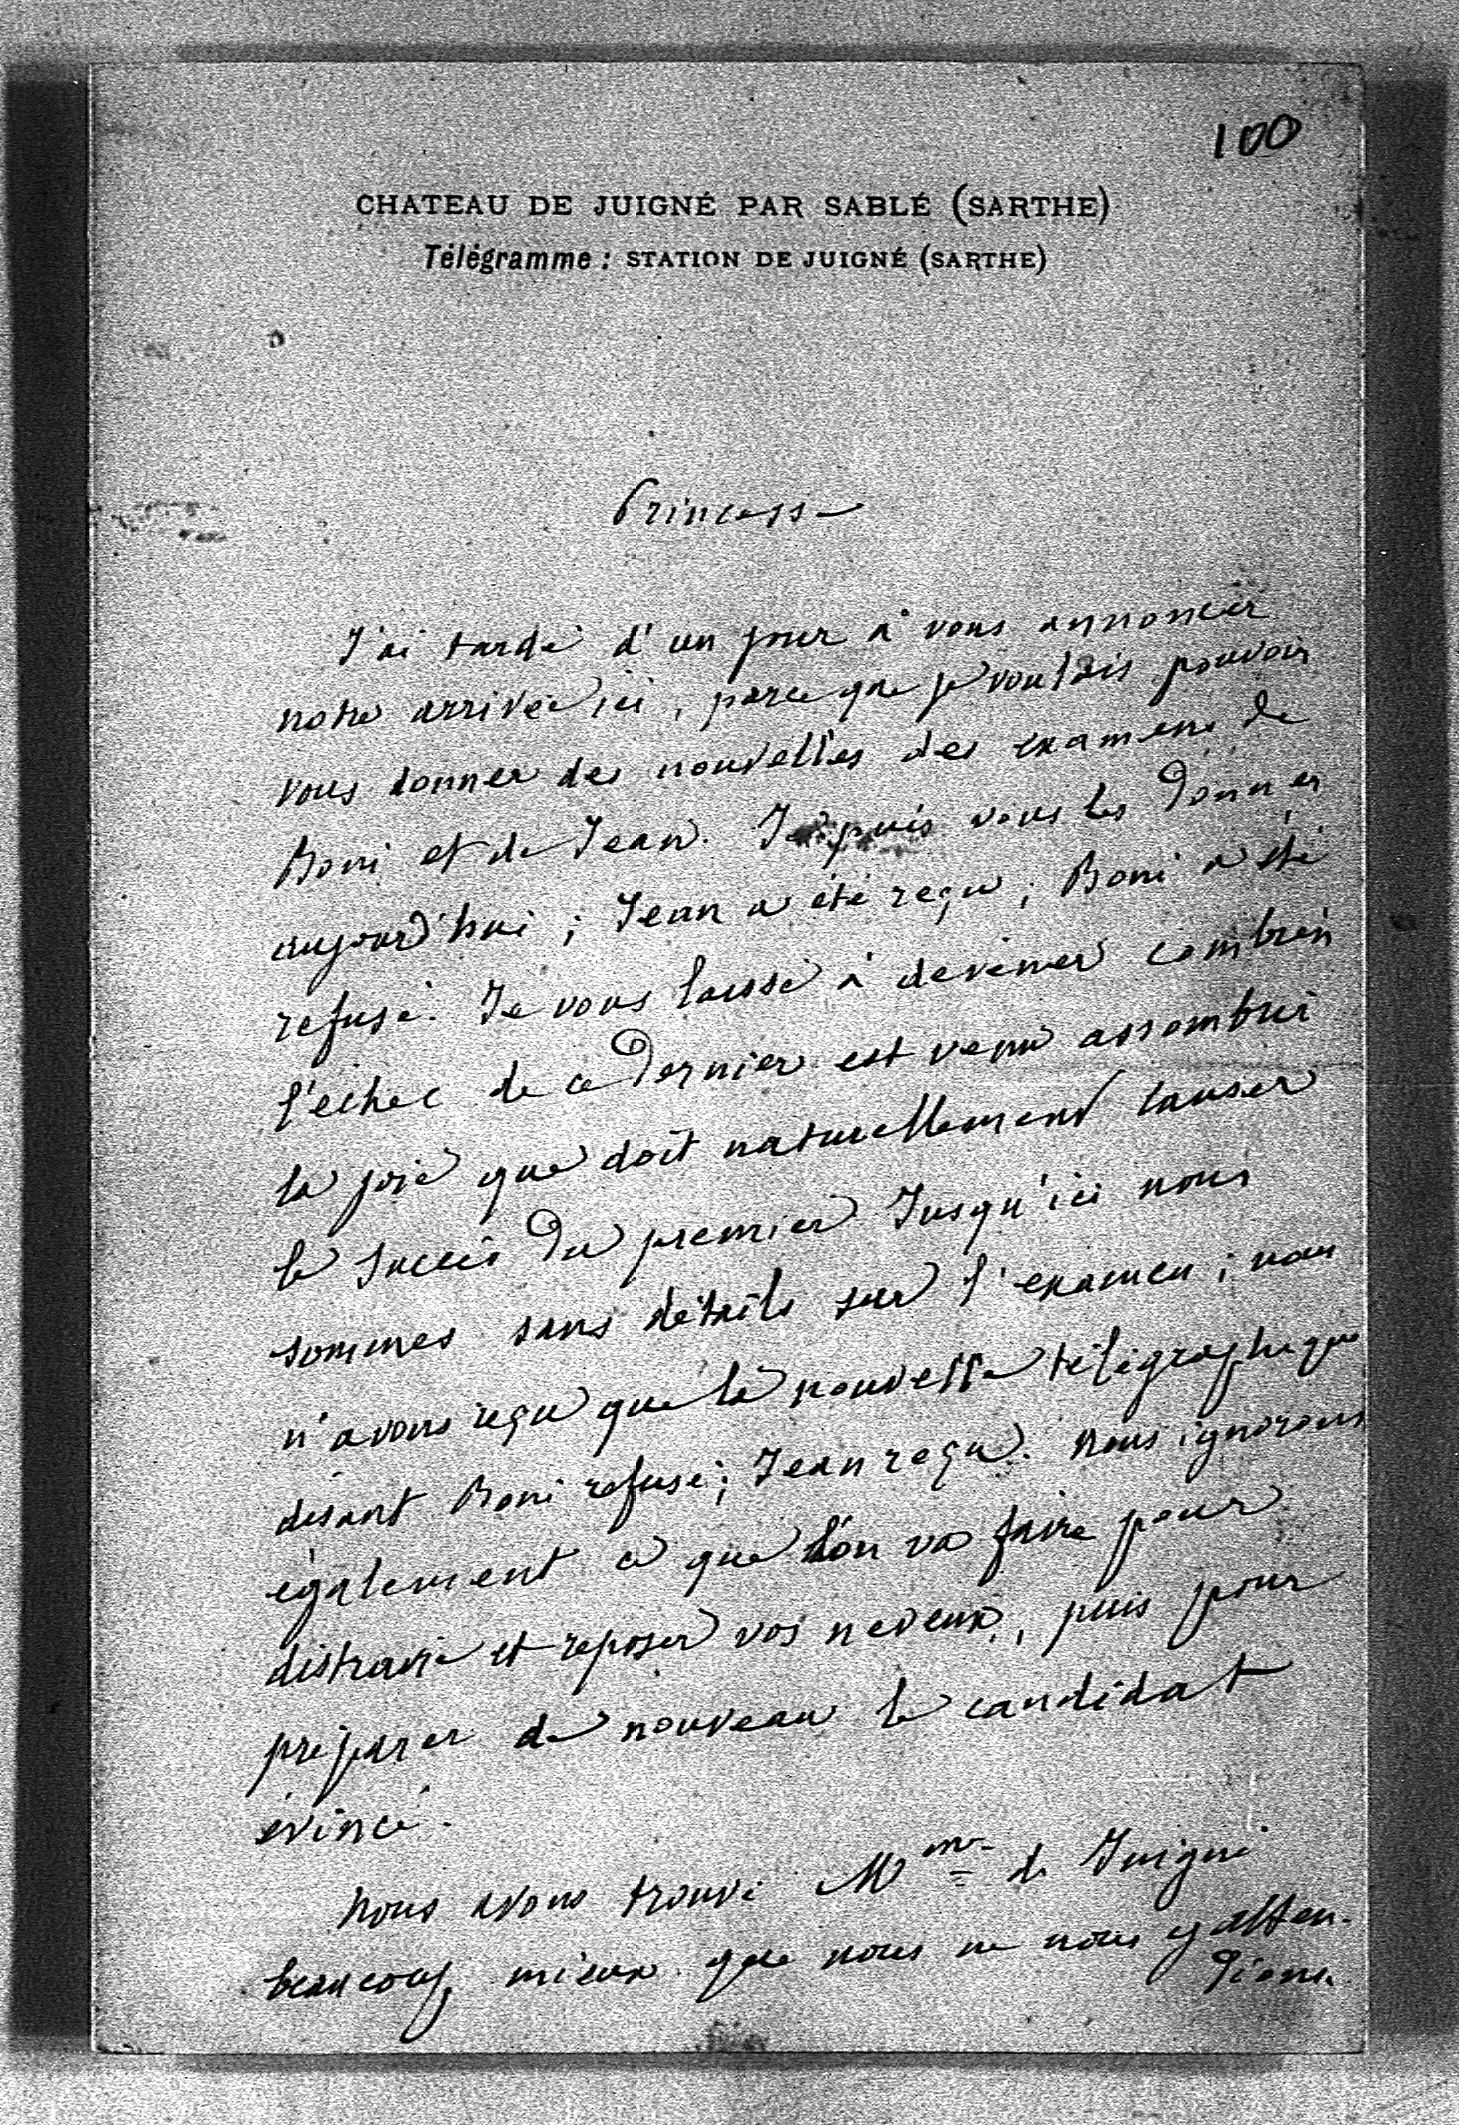 100
CHATEAU DE JUIGNÉ PAR SABLÉ (SARTHE)
Télégramme : STATION DE JUIGNÉ (SARTHE)
Princesse
J'ai tardé d'un jour à vous annoncer
notre arrivée ici, parce que je voulais pouvoir
vous donner des nouvelles des examens de
Boni et de Jean. Je puis vous les donner
aujourd'hui ; Jean a été reçu ; Boni a été
refusé. Je vous laisse à deviner combien
l'échec de ce dernier est venu assombrir
la joie que doit naturellement causer
le succès du premier. Jusqu'ici nous
sommes sans détails sur l'examen ; nous
n'avons reçu que la nouvelle télégraphique
disant Boni refusé ; Jean reçu. Nous ignorons
également ce que l'on va faire pour
distraire et reposer vos neveux, puis pour
préparer de nouveau le candidat
évincé.
Nous avons trouvé Mme de Juigné
beaucoup mieux que nous ne nous y atten-
dions.